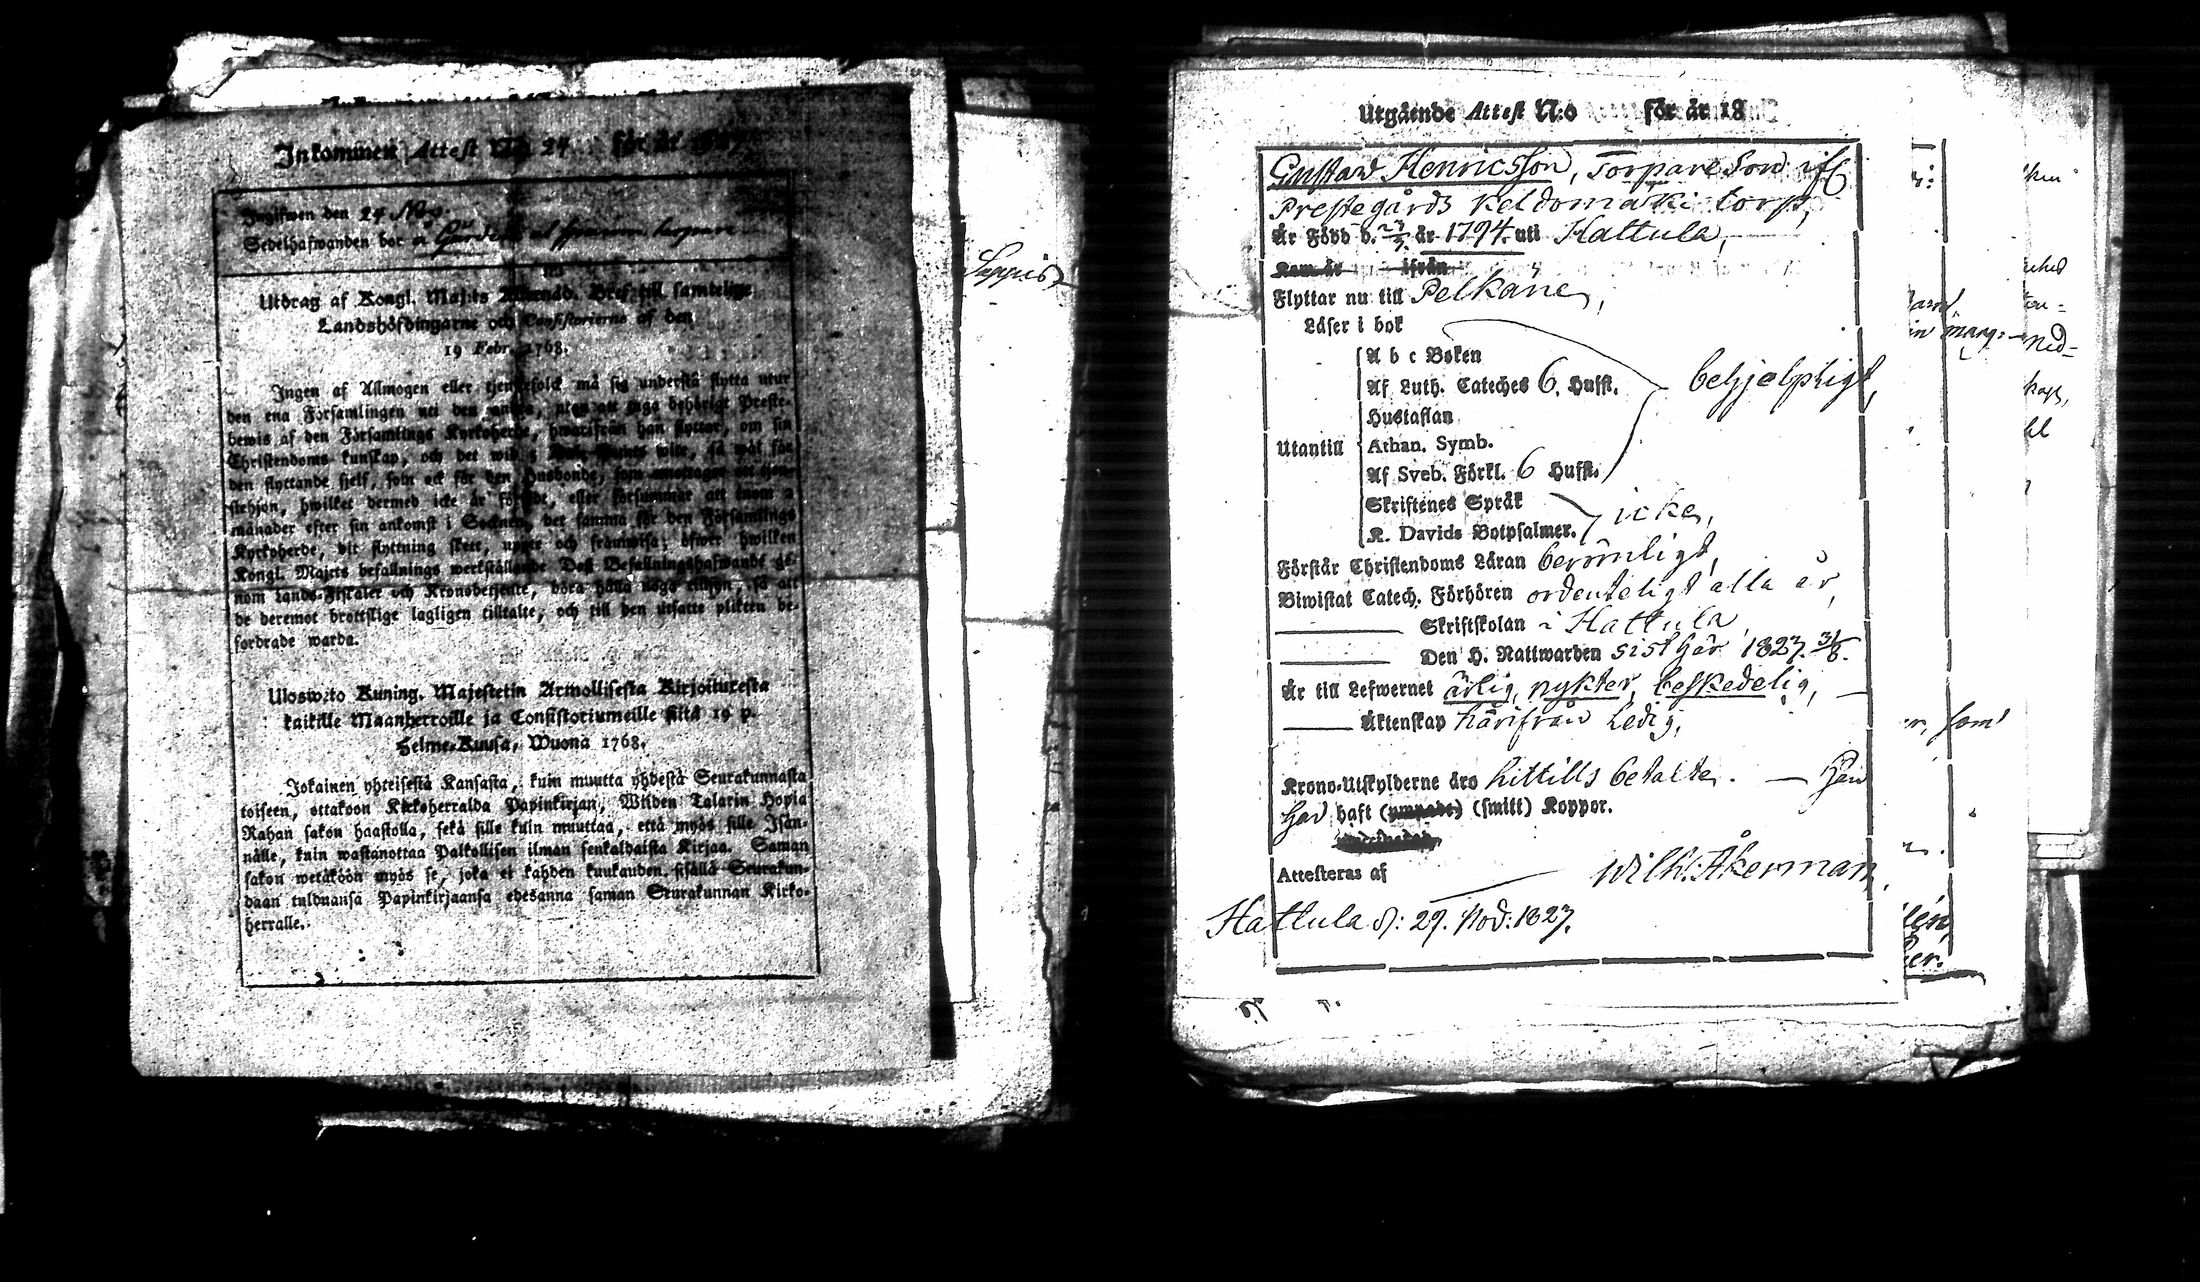 Inkommen Attest No 24 för år
Ingifwen den 24 Nov.
Sedelhafwanden bor
Utdrag af Kongl. Maj:ts Bref till samtelige
Landshöfdingarne och Consistorierne af den
19 Febr. 1768.
Ingen af Allmogen eller tjenstefolck må sig understå flytta utur
den ena Församlingen uti den andra, utan att taga behörigt Preste-
bewis af den Församlings Kyrkoherde, hwarifrån han flyttar, om sin
Christendoms kunskap, och det wid 5 wite, så wäl för
den flyttande sjelf, som ock för den Husbonde, som emottager ett tjen-
stehjon, hwilket dermed icke är försedt, eller försummar att inom 2
månader efter sin ankomst i Socknen, det samma för den Församlings
Kyrkoherde, dit flyttning skett, uppte och framwisa; öfwer hwilken
Kongl. Maj:ts befallnings werkställande Dess Befallningshafwande ge-
nom Lands-Fiskaler och Kronobetjente, böra hålla noga tillsyn, så att
de deremot brottslige lagligen tilltalte, och till den utsatte plikten be-
fordrade warda.
Ulosweto Kuning. Majestetin Armollisesta Kirjoituresta
kaikille Maanherroille ja Consistoriumeille siitä 19 p.
Helme-Kuusa, Wuonna 1768.
Jokainen yhteisestä Kansasta, kuin muutta yhdestä Seurakunnasta
toiseen, ottakoon Kirkoherralda Papinkirjan, Wiiden Talarin Hopia
Rahan sakon haastolla, sekä sille kuin muuttaa, että myös sille Isän-
nälle, kuin wastanottaa Palkollisen ilman senkaldaista Kirjaa. Saman
sakon wetäköön myös se, joka ei kahden kuukauden sisällä Seurakun-
daan tulduansa Papinkirjaansa edesanna saman Seurakunnan Kirko-
herralle.
Lappis
Utgående Attest N:o för år 18
Gustaw Henricsson, Torpare Son if:
Prestegårds Keldomäki torp,
Är Född d. 27/3. år 1794. uti Hattula,
Kom år ifrån
Flyttar nu till Pelkäne,
Läser i bok
A b c Boken
Af Luth. Cateches 6. Hufst. behjelpligt,
Hustaflan
Utantill Athan. Symb.
Af Sveb. Förkl. 6 Hufst.
Skriftenes Språk
K. Davids Botpsalmer. icke,
Förstår Christendoms Läran berömligt,
Biwistat Catech. Förhören ordenteligt alla år,
Skriftskolan i Hattula,
Den H. Nattwarden sist här 1827. 31/8.
Är till Lefwernet ärlig, nykter, beskedelig,
Äktenskap härifrån Ledig,
Krono-Utskylderne äro hittills betalte. — Han
har haft (smitt) Koppor.
Attesteras af Wilh: Åkerman,
Hattula d: 29. Nov: 1827.